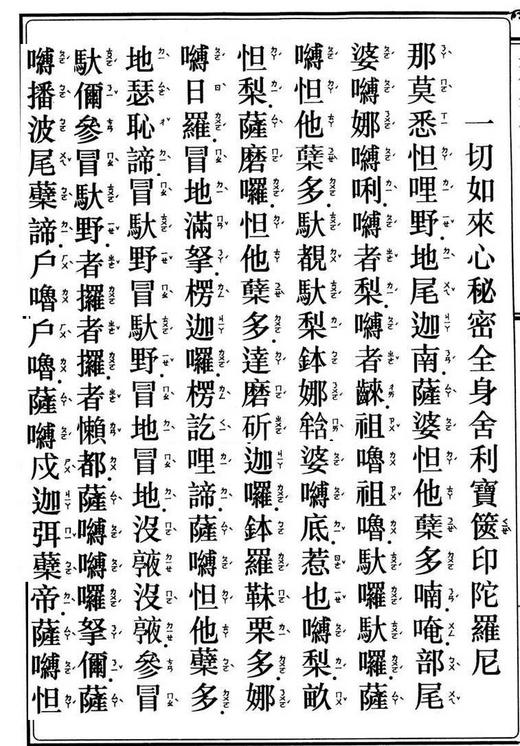 一切如來心秘密全身舍利寶篋印陀羅尼
那莫悉怛哩野地尾迦南薩婆怛他蘖多喃唵部尾
婆嚩娜嚩唎嚩者梨嚩者齂祖嚕祖嚕馱囉馱囉薩
嚩怛他蘖多馱覩馱梨鉢娜𤚥婆嚩底惹也嚩梨畝
怛梨薩磨囉怛他蘖多達磨斫迦囉鉢羅靺栗多娜
嚩日羅冒地滿拏楞迦囉楞訖哩諦薩嚩怛他蘖多
地瑟恥諦冒馱野冒馱野冒地冒地沒𠆙沒𠆙參冒
馱儞參冒馱野者攞者攞者懶都薩嚩嚩囉拏儞薩
嚩播波尾蘖諦戶嚕戶嚕薩嚩戍迦弭蘖帝薩嚩怛